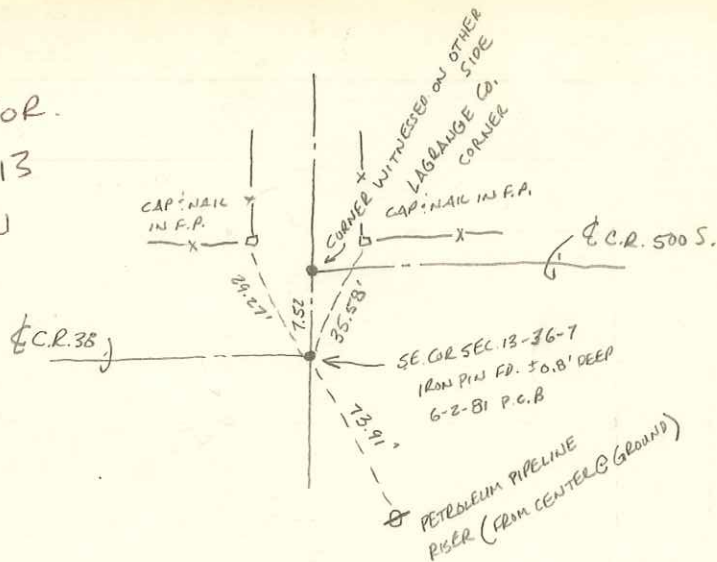 OR.
13
CORNER WITNESSED ON OTHER
SIDE
LAGRANGE CO.
CORNER
CAP & NAIL
IN F.P.
CAP & NAIL IN F.P.
℄ C.R. 500 S.
29.27'
7.52
35.58'
℄ C.R. 38
S.E. COR SEC. 13-36-7
IRON PIN FD. ±0.8' DEEP
6-2-81 P.C.B
73.91'
PETROLEUM PIPELINE
RISER (FROM CENTER @ GROUND)